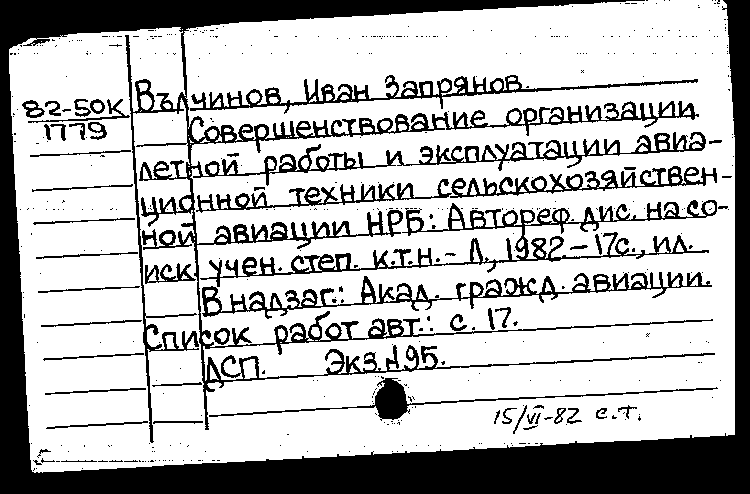 82-50К
1779
Вълчинов, Иван Запрянов.
Совершенствование организации
летной работы и эксплуатации авиа-
ционной техники сельскохозяйствен-
ной авиации НРБ: Автореф. дис. на со-
иск. учен. степ. к.т.н. - Л., 1982. - 17с., ил.
В надзаг.: Акад. гражд. авиации.
Список работ авт.: с. 17.
ДСП. Экз. №95.
15/VI-82 с.т.